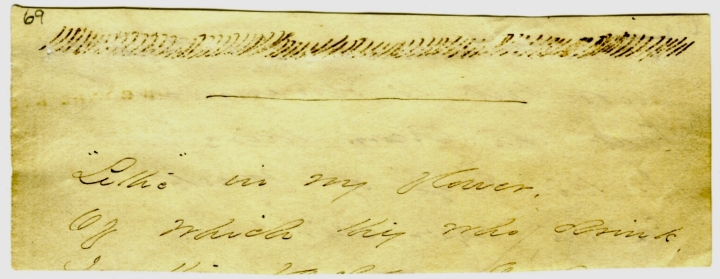 69
"Lethe" in my flower,
Of which they who drink
In the